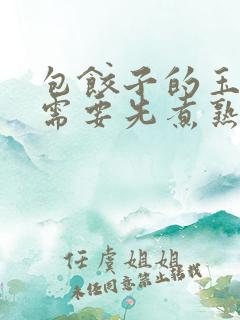 包餃子的玉
需要先煮熟
任虞姐姐
未经同意禁止转载